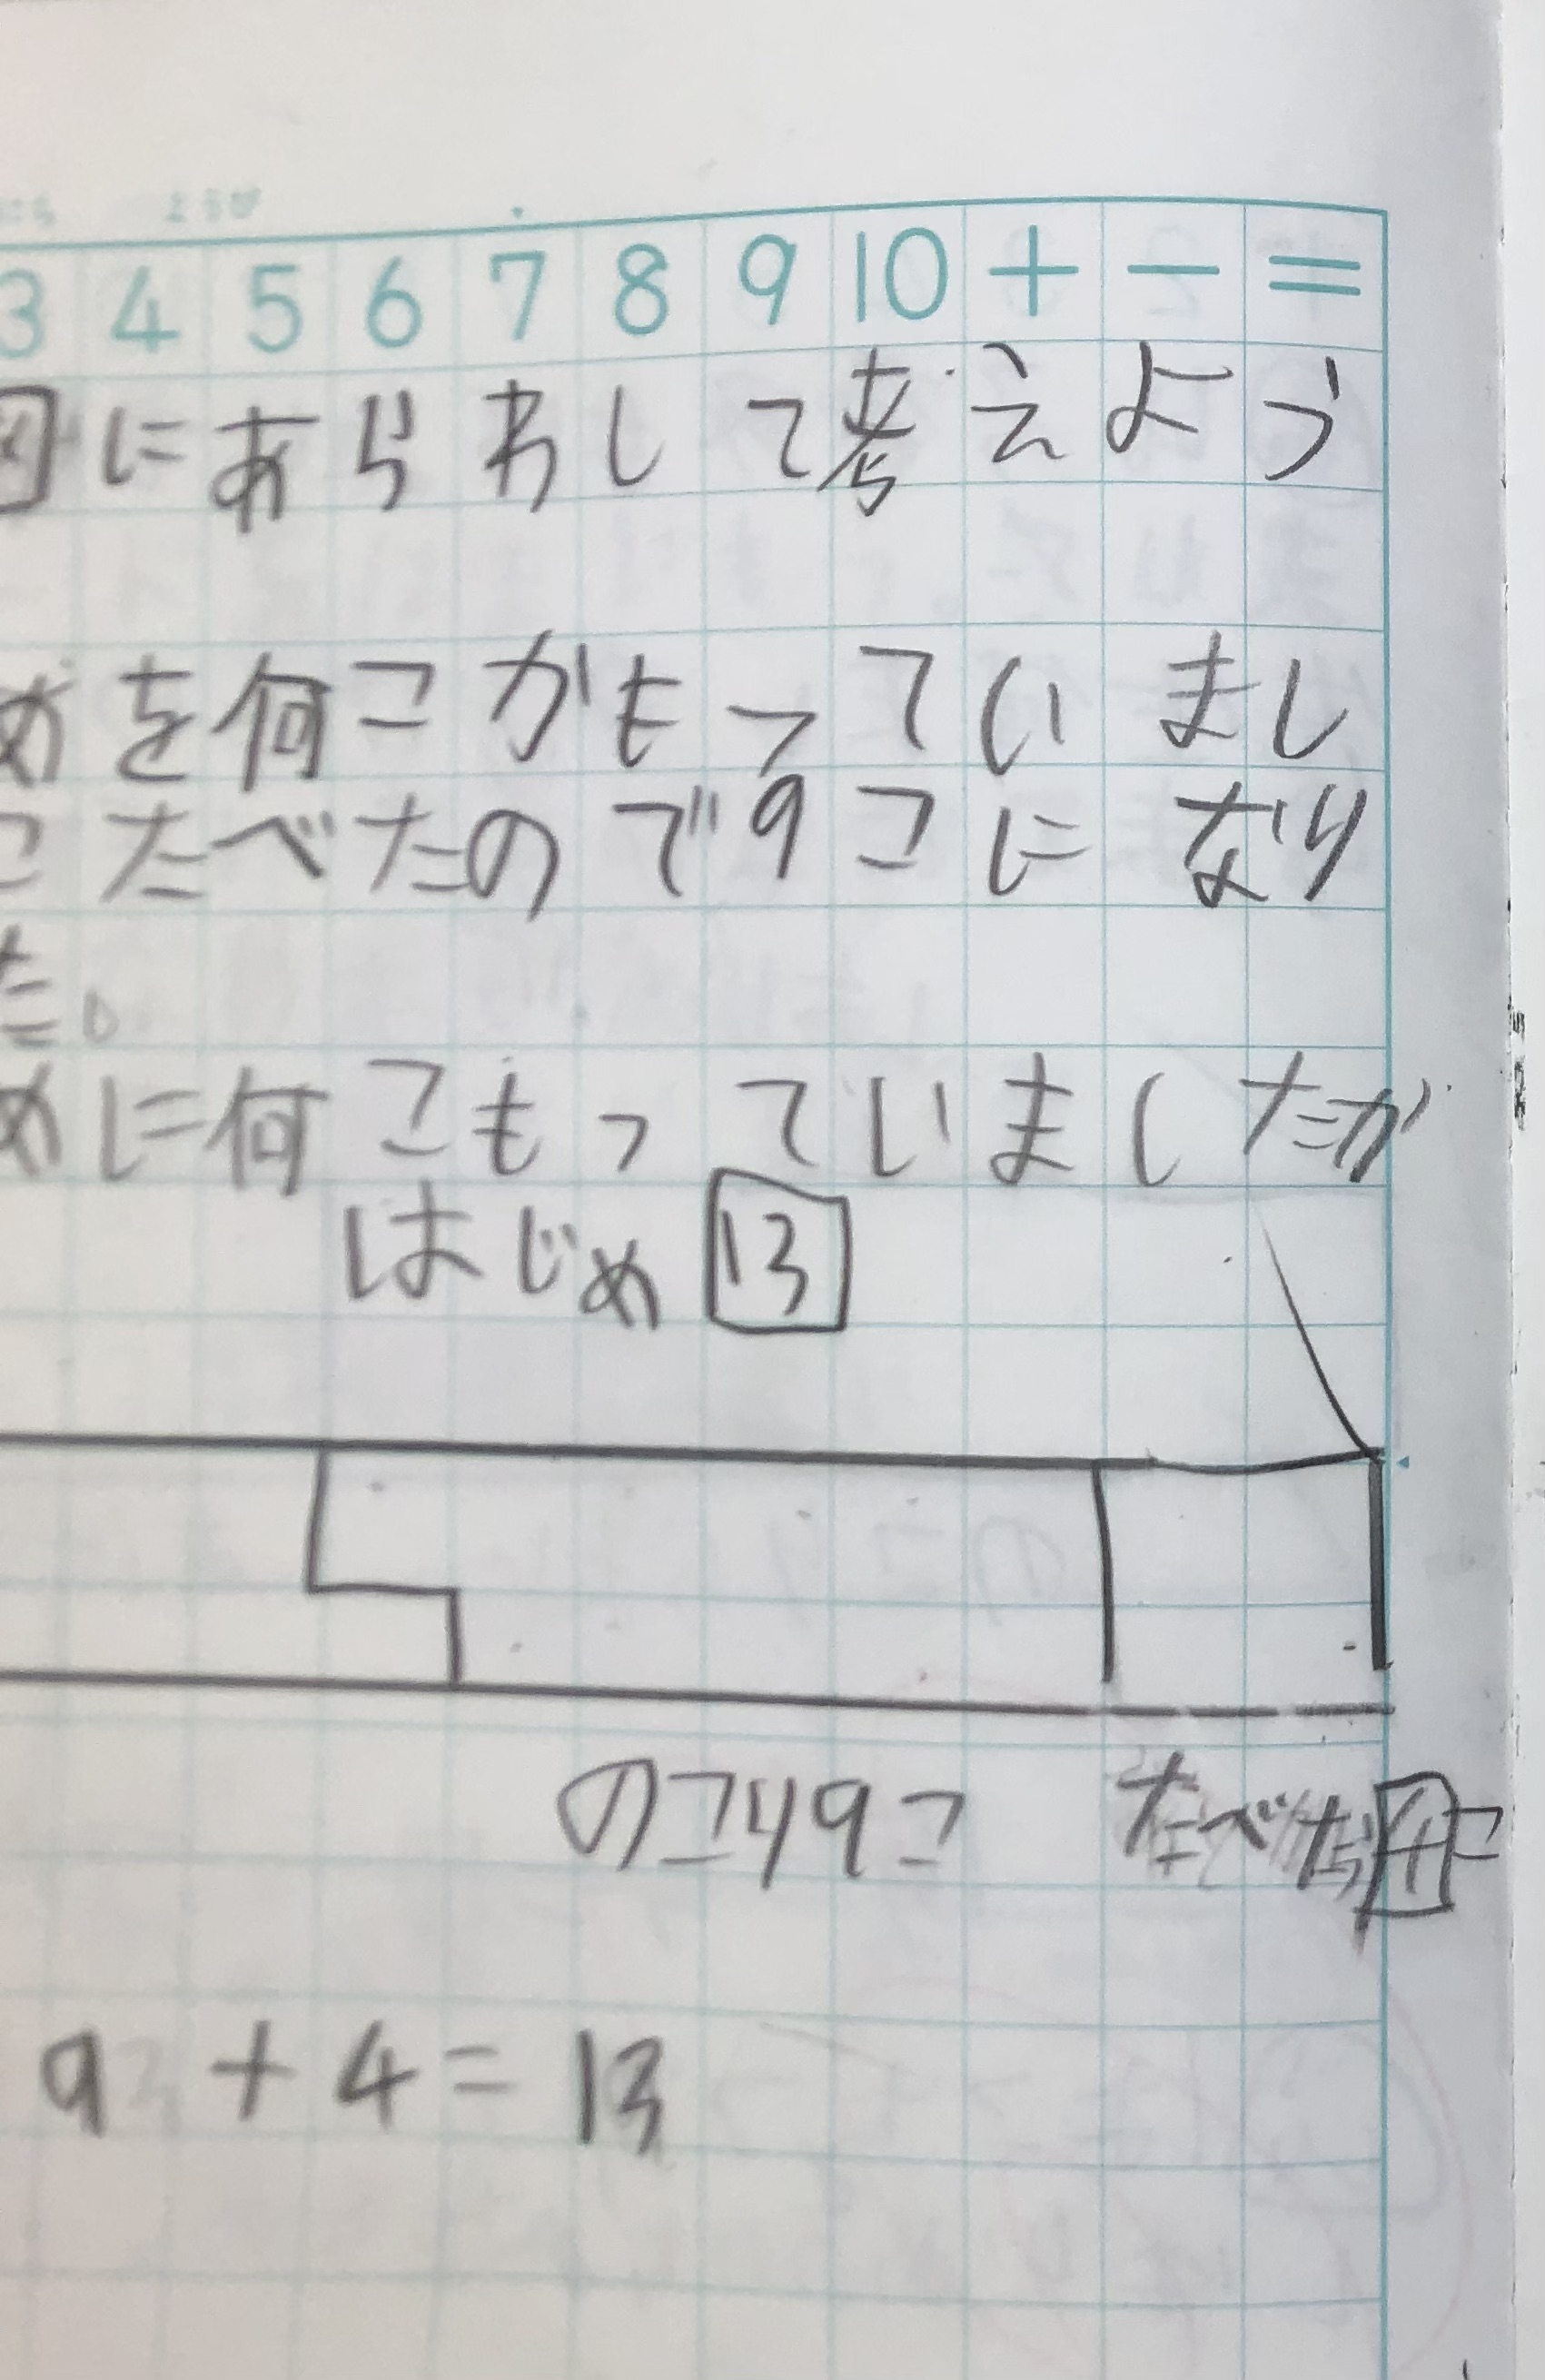 3 4 5 6 7 8 9 10 + - =
図にあらわして考えよう
めを何こかもっていまし
こたべたので9こになり
た。
めに何こもっていましたか
はじめ 13
のこり9こ たべた 4こ
9 + 4 = 13